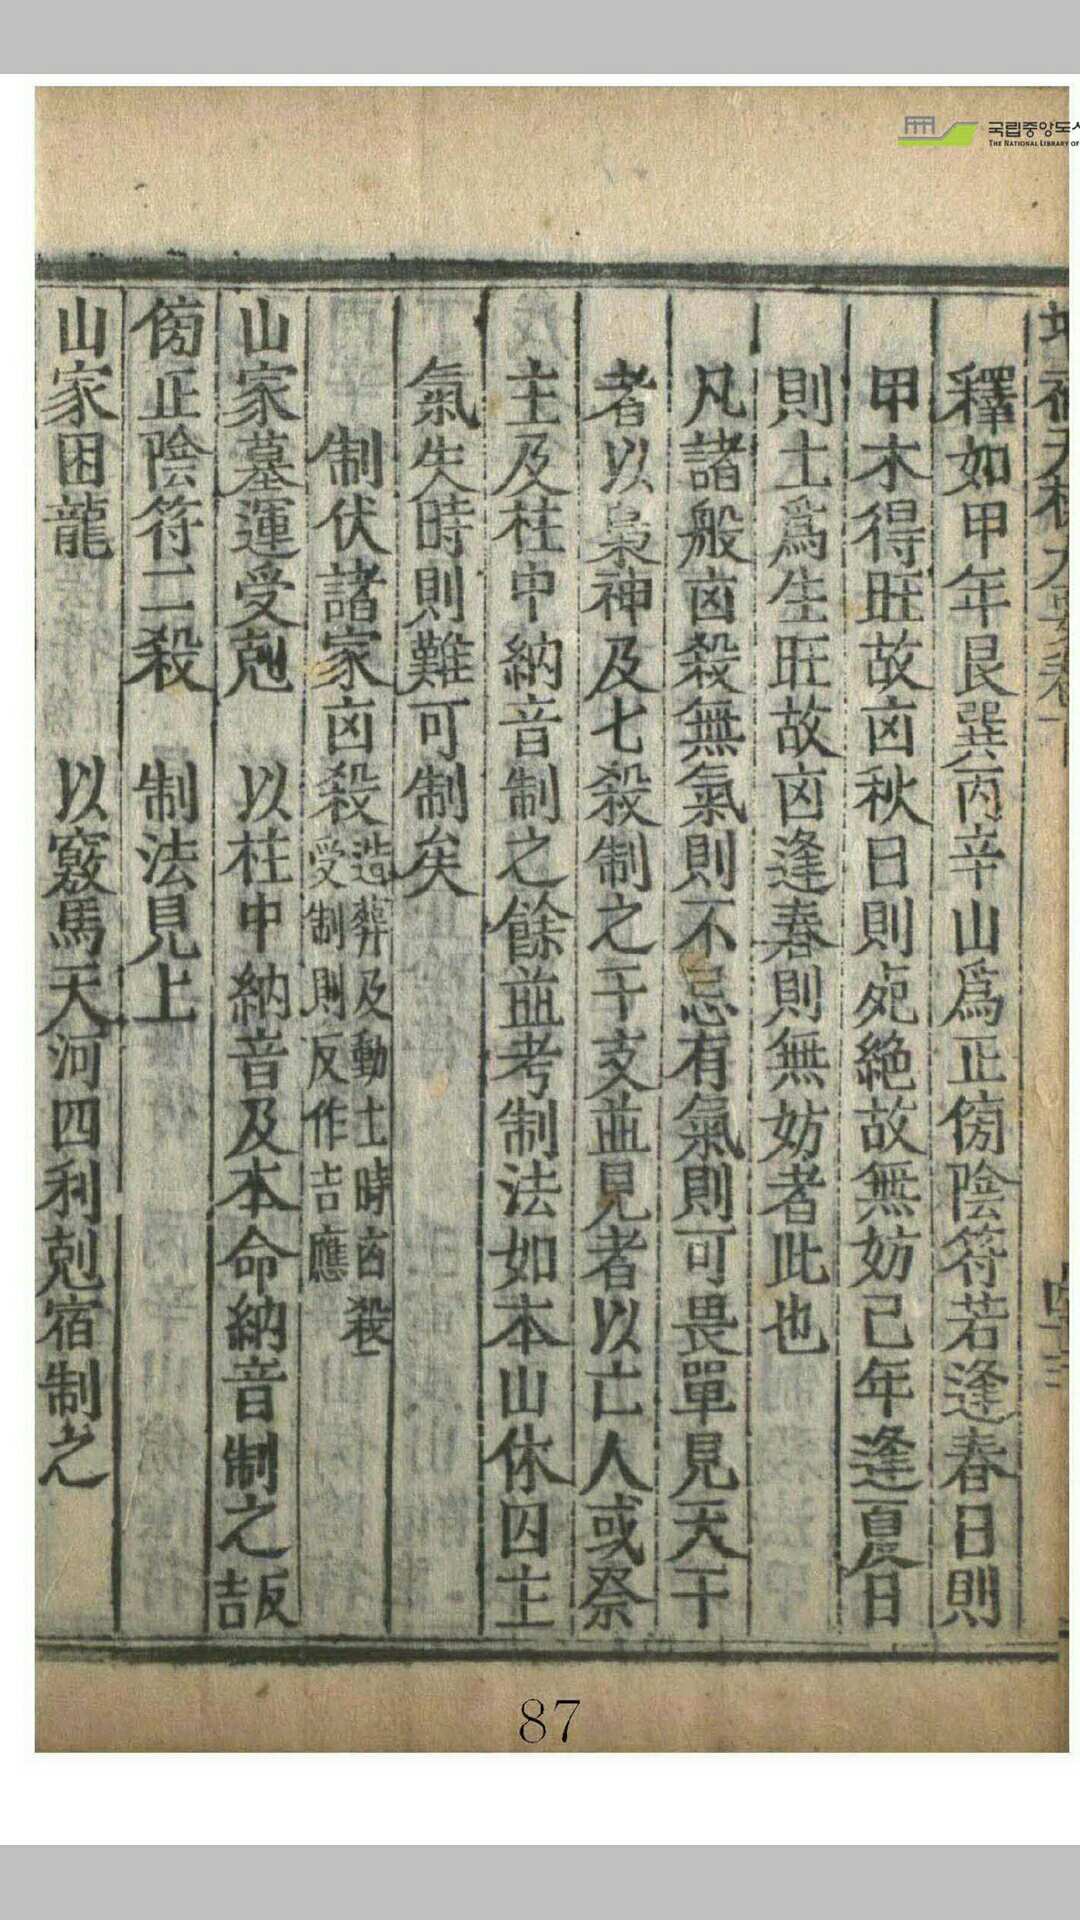 국립중앙도서
THE NATIONAL LIBRARY OF
釋如甲年艮巽丙辛山爲正傍陰符若逢春日則
甲木得旺故凶秋日則死絶故無妨己年逢夏日
則土爲生旺故凶逢春則無妨者此也
凡諸般凶殺無氣則不忌有氣則可畏單見天干
者以梟神及七殺制之干支並見者以亡人或祭
主及柱中納音制之餘並考制法如本山休囚主
氣失時則難可制矣
制伏諸家凶殺造葬及動土時凶殺
受制則反作吉應
山家墓運受剋 以柱中納音及本命納音制之反吉
傍正陰符二殺 制法見上
山家困龍 以竅馬天河四利剋宿制之
87